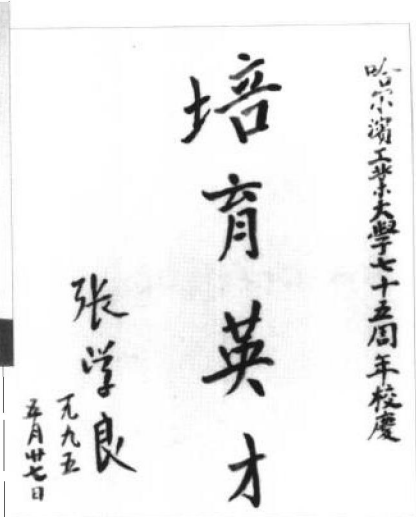 哈尔濱工業大學七十五周年校慶
培育英才
張学良
一九九五
五月廿七日